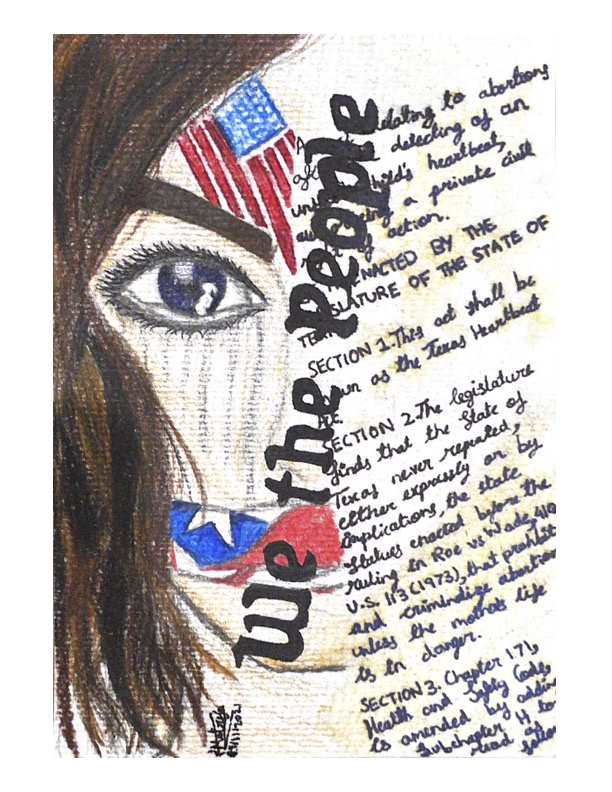 We the People
A relating to abortions
detecting of an
heartbeat,
a private civil
action.
ENACTED BY THE
LEGISLATURE OF THE STATE OF
SECTION 1. This act shall be
as the Texas Heartbeat
SECTION 2. The legislature
finds that the State of
Texas never repeated,
either expressly or by
implications, the state
statues enacted before the
ruling in Roe vs Wade, 410
U.S. 113 (1973), that prohibit
and criminalize abortion
unless the mother's life
is in danger.
SECTION 3. Chapter 171,
Health and Safety Code,
is amended by adding
Subchapter H to
read as